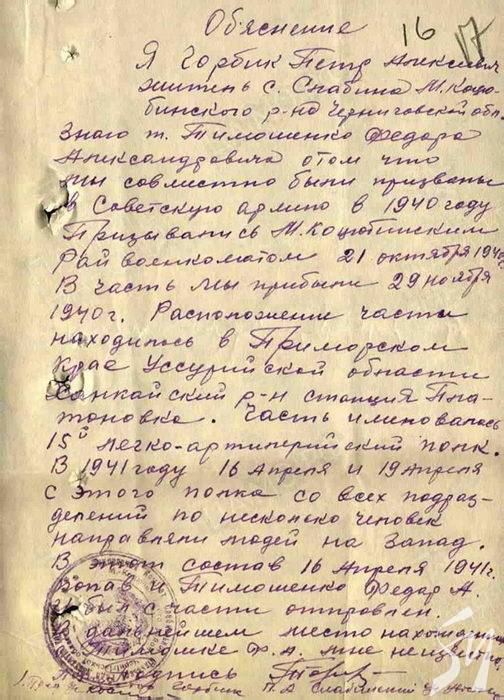 Обяснение
16
17
Я Горбик Петр Алексеевич
житель с. Слабина М. Коцю-
бинского р-на Черниговской обл.
Знаю т. Тимошенко Федара
Александровича отом что
мы совмистно были призваны
в Советскую армию в 1940 году
Призывались М. Коцюбинским
Райвоенкоматом 21 октября 1940г.
В часть мы прибыли 29 ноября
1940г. Расположение части
находилось в Приморском
Крае Уссурийской области
Ханкайский р-н станция Пла-
тоновка. Часть именовалась
15й легко-артилерийский полк.
В 1941 году 16 Апреля и 19 Апреля
с этого полка со всех подраз-
делений по несколько человек
направляли людей на Запад.
В этот состав 16 Апреля 1941г.
попав и Тимошенко Федар А.
и был с части отправлен.
В дальнейшем место нахождения
Тимошенко Ф. А. мне неизвестно
подпись
Горбик П. А. Слабинский